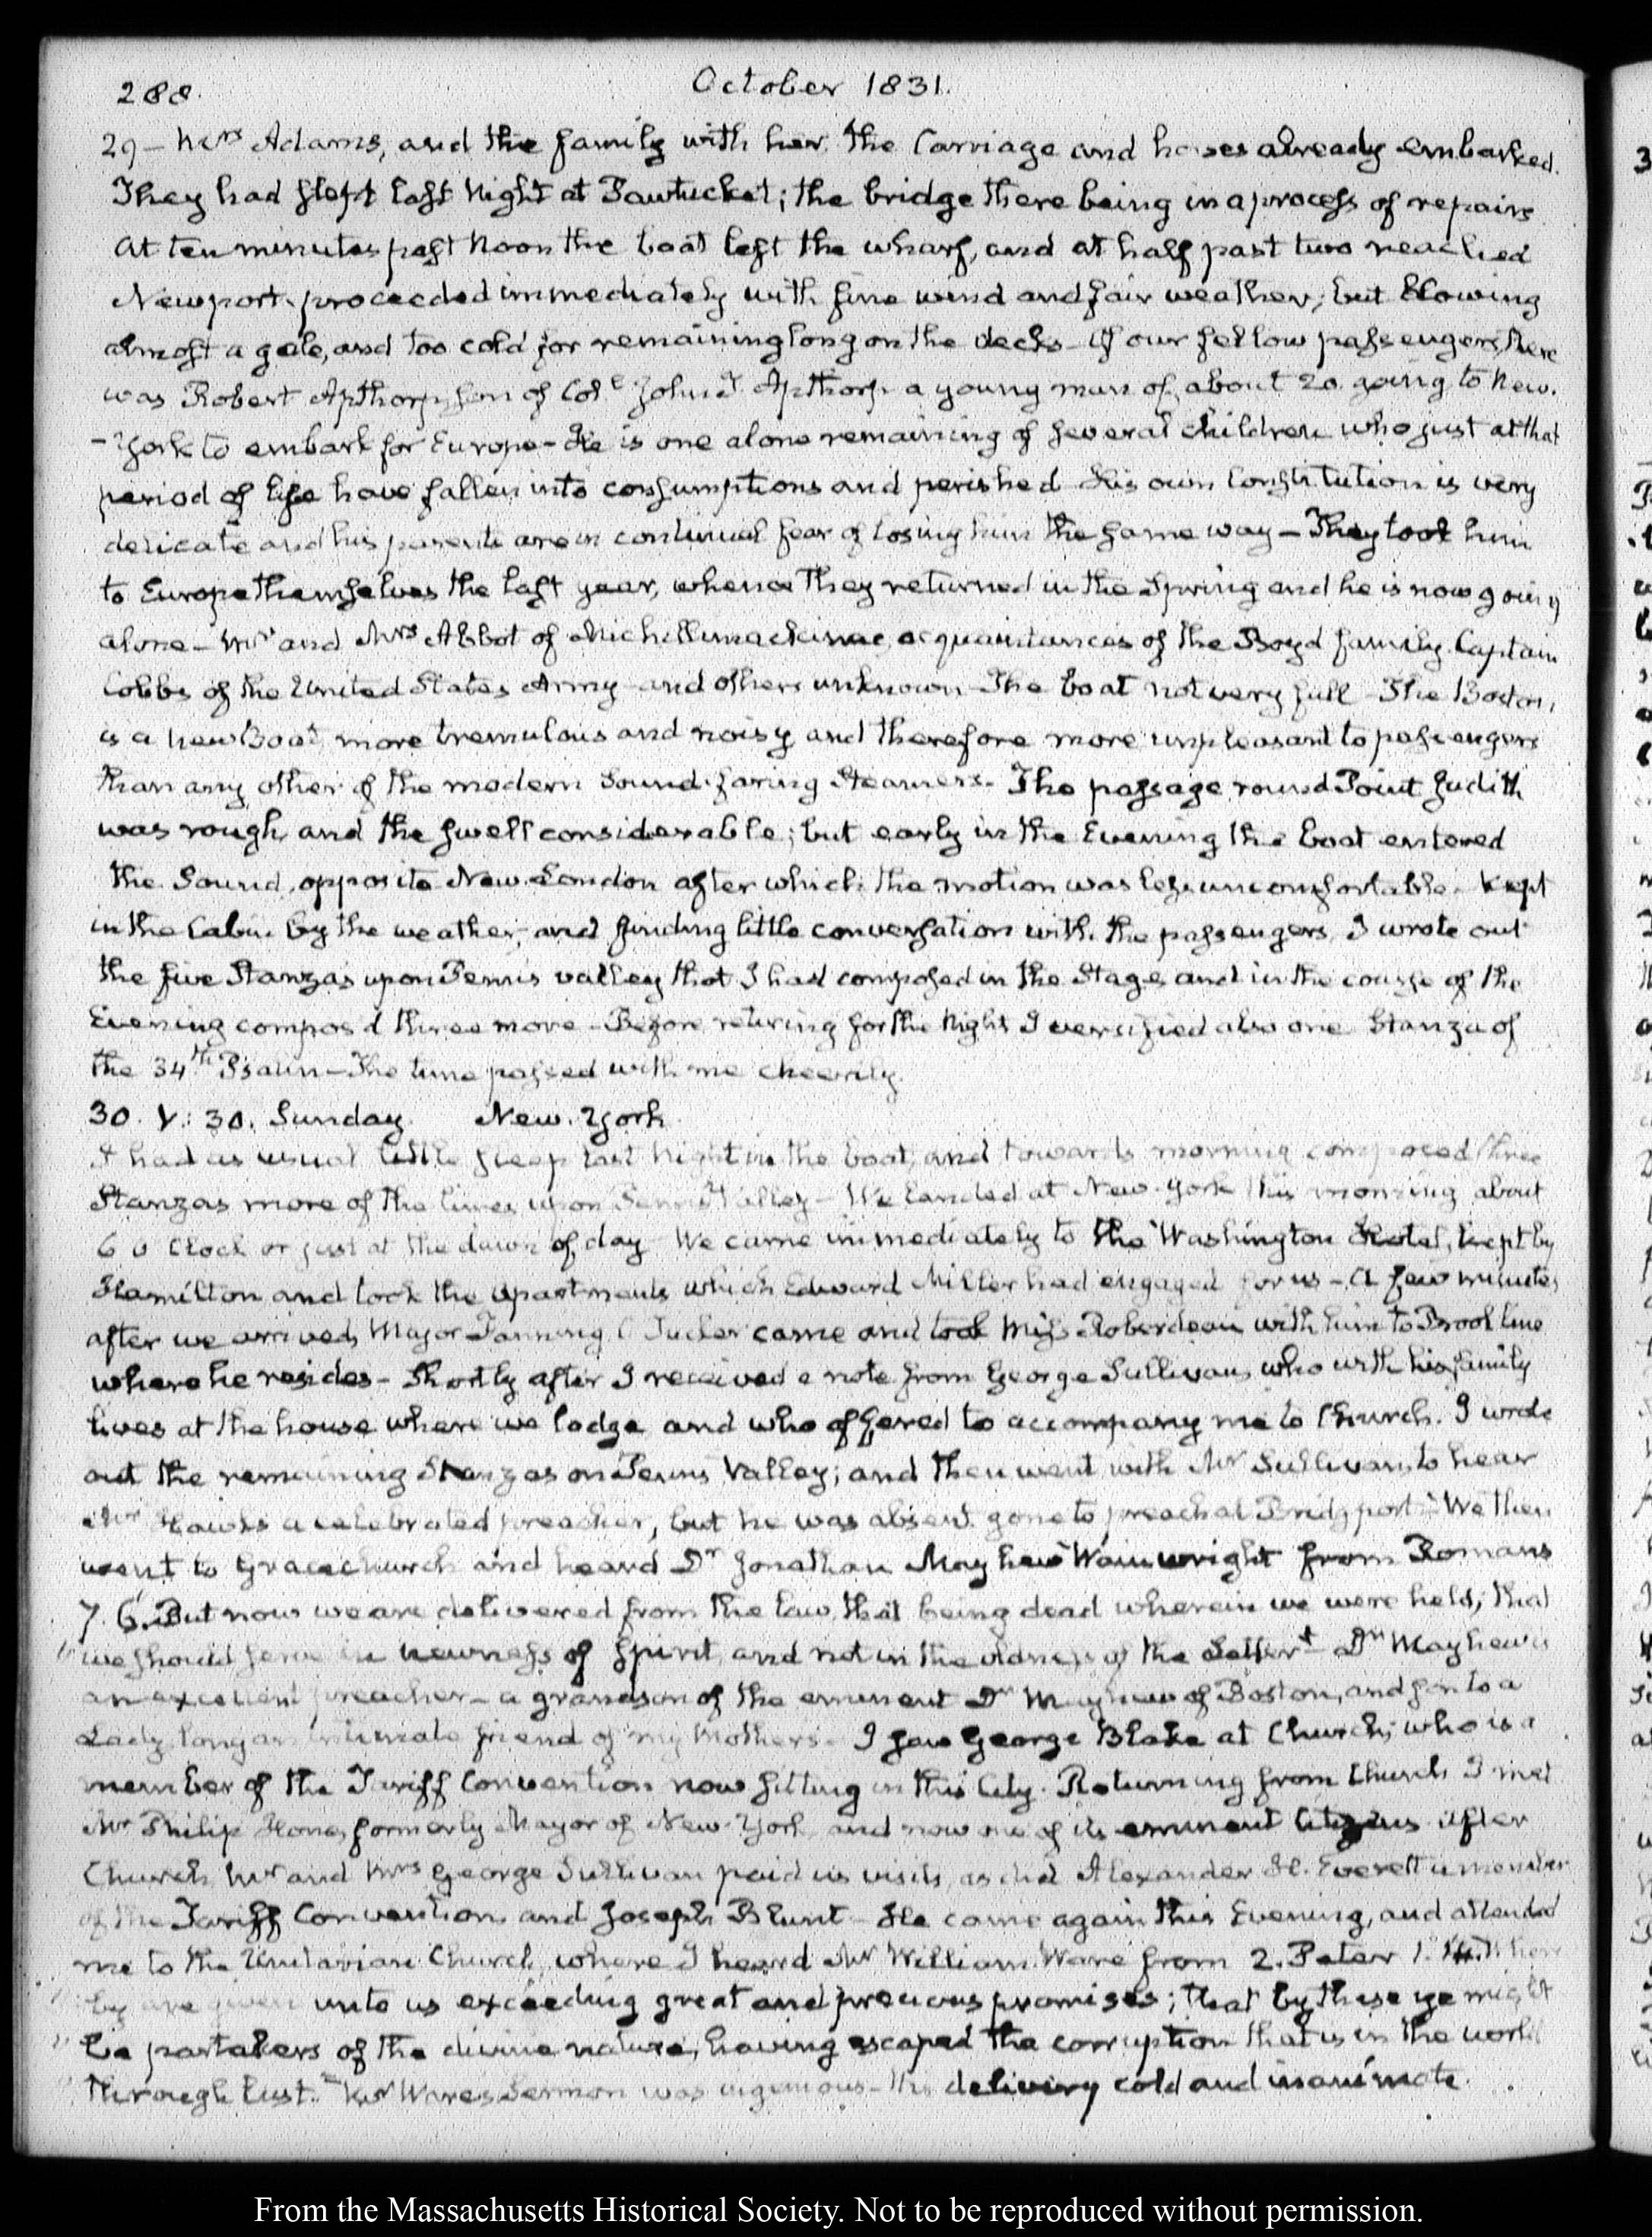 288.
October 1831.
29— Mrs Adams, and the family with her. The Carriage and horses already embarked.
They had slept last Night at Pawtucket; the bridge there being in a process of repairs
At ten minutes past Noon the boat left the wharf, and at half past two reached
Newport. proceeded immediately with fine wind and fair weather; but blowing
almost a gale, and too cold for remaining long on the deck— Of our fellow passengers, there
was Robert Apthorp, son of Col. John T. Apthorp a young man of about 20. going to New-
-York to embark for Europe— He is one alone remaining of several children who just at that
period of life have fallen into consumptions and perished His own Constitution is very
delicate and his parents are in continual fear of losing him the same way— They took him
to Europe themselves the last year, whence they returned in the Spring and he is now going
alone— Mr and Mrs Abbot of Michillimackinac, acquaintances of the Boyd family. Captain
Cobbs of the United States Army and others unknown— The boat not very full— The Boston,
is a new Boat, more tremulous and noisy and therefore more unpleasant to passengers
than any other of the modern Sound-faring Steamers— The passage round Point Judith
was rough, and the swell considerable; but early in the Evening the boat entered
the Sound, opposite New-London after which the motion was less uncomfortable. Kept
in the Cabin by the weather, and finding little conversation with the passengers, I wrote out
the five Stanzas upon Jenni's valley that I had composed in the Stage and in the course of the
Evening compos'd three more— Before retiring for the Night I versified also one Stanza of
the 34th Psalm— The time passed with me cheerily.
30. V: 30. Sunday. New-York
I had as usual little sleep last Night in the boat, and towards morning composed three
Stanzas more of the lines upon Valley— We landed at New-York this morning about
6 O'Clock or just at the dawn of day— We came immediately to the Washington Hotel, kept by
Hamilton and took the apartments which Edward Miller had engaged for us— A few minutes
after we arrived, Major Fanning C Tucker came and took Miss Roberdeau with him to Brookline
where he resides— Shortly after I received a note from George Sullivan, who with his family
lives at the house where we lodge and who offered to accompany me to Church. I wrote
out the remaining Stanzas on Valley; and then went with Mr Sullivan, to hear
Mr Hawks a celebrated preacher, but he was absent. gone to preach at Bridgport. We then
went to Gracechurch and heard Dr Jonathan Mayhew Wainwright from Romans
7. 6. But now we are delivered from the law, that being dead wherein we were held; that
"we should serve in newness of Spirit, and not in the oldness of the Letter" Dr Mayhew is
an excellent preacher— a grandson of the eminent Dr Mayhew of Boston, and son to a
Lady, long an intimate friend of my Mothers— I saw George Blake at Church; who is a
member of the Tariff Convention now sitting in this City. Returning from Church I met
Mr Philip Hone, formerly Mayor of New-York, and now one of its eminent Citizens After
Church, Mr and Mrs George Sullivan paid us visits, as did Alexander H. Everett a member
of the Tariff Convention and Joseph Blunt— He came again this Evening, and attended
me to the Unitarian Church, where I heard Mr William Ware from 2. Peter 1. Where
"by are given unto us exceeding great and precious promises; that by these ye might
"be partakers of the divine nature, having escaped the corruption that is in the world
"through lust." Mr Ware's Sermon was ingenious— the delivery cold and inanimate.
From the Massachusetts Historical Society. Not to be reproduced without permission.